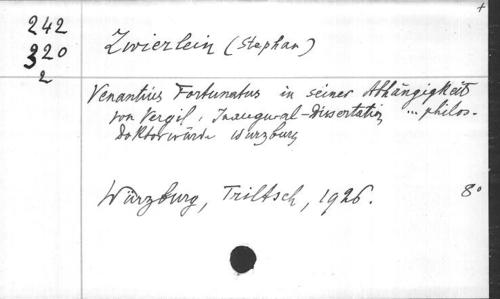 +
242
320
2
Zwierlein (Stephan)
Venantius Fortunatus in seiner Abhängigkeit
von Vergil, Inaugural-Dissertation ... philos-
Doktorwürde Wurzburg
Würzburg, Triltsch, 1926. 8°